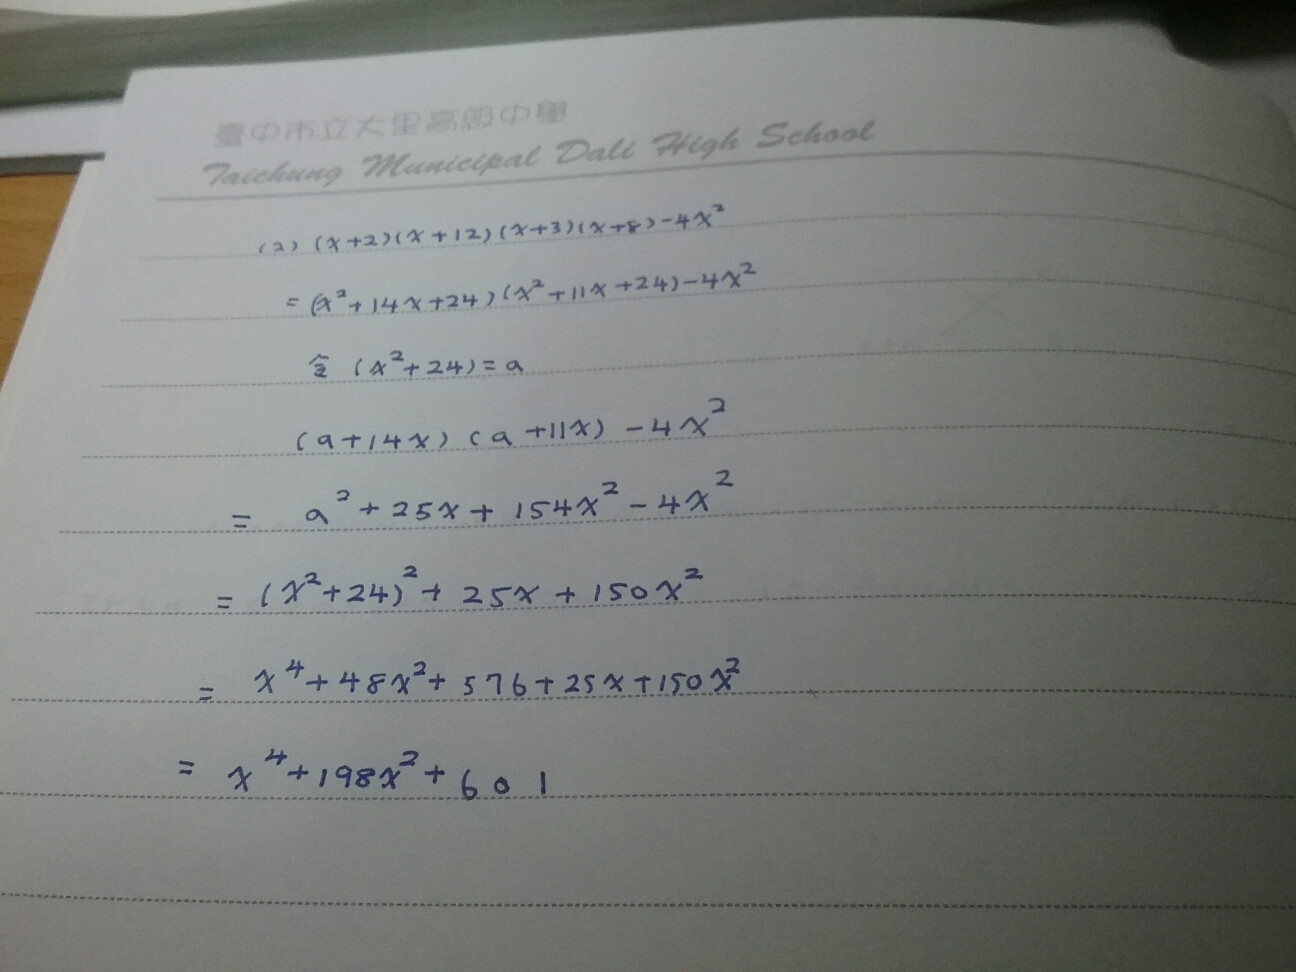 臺中市立大里高級中學
Taichung Municipal Dali High School
(2) (x+2)(x+12)(x+3)(x+8)-4x²
= (x²+14x+24)(x²+11x+24)-4x²
令 (x²+24)=a
(a+14x)(a+11x)-4x²
= a²+25x+154x²-4x²
= (x²+24)²+25x+150x²
= x⁴+48x²+576+25x+150x²
= x⁴+198x²+601